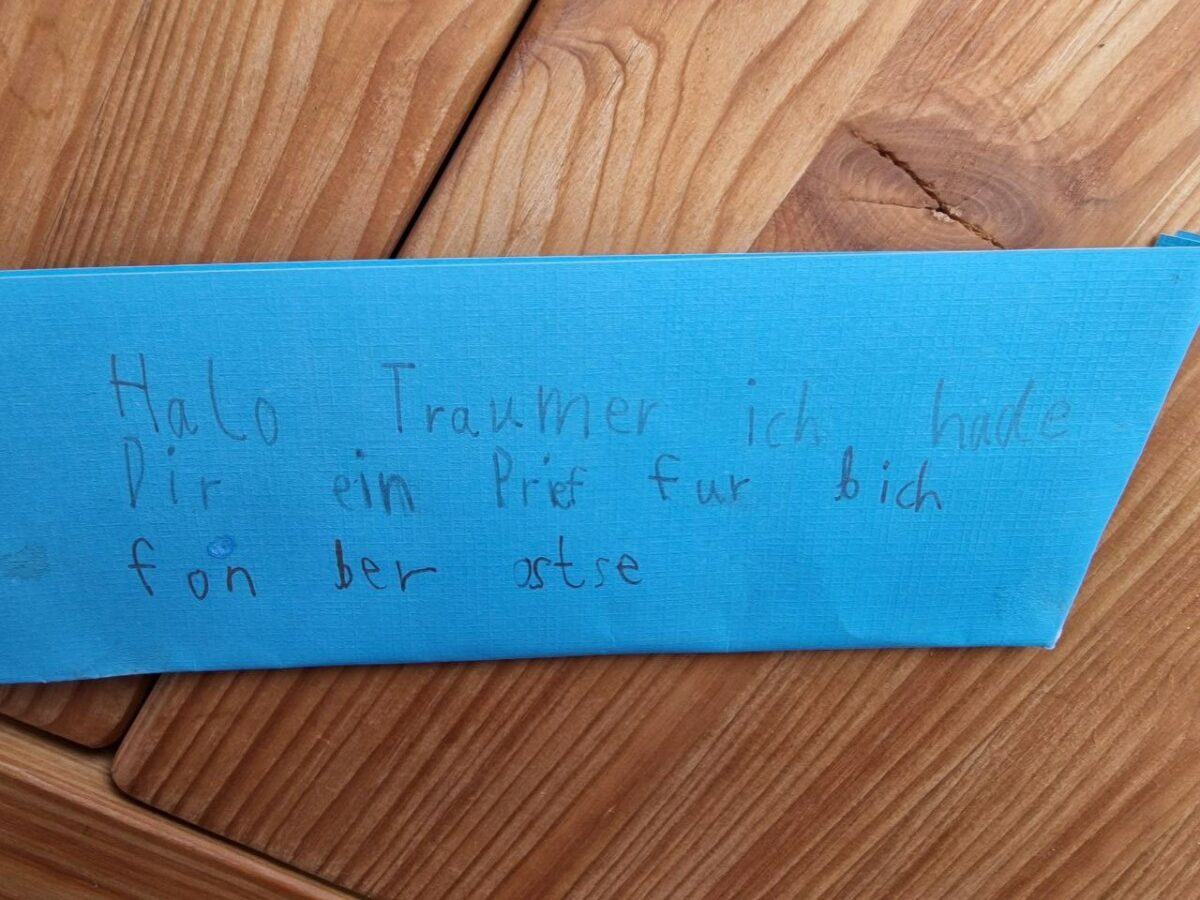 Halo Traumer ich hade
Dir ein Prief fur bich
fon ber ostse